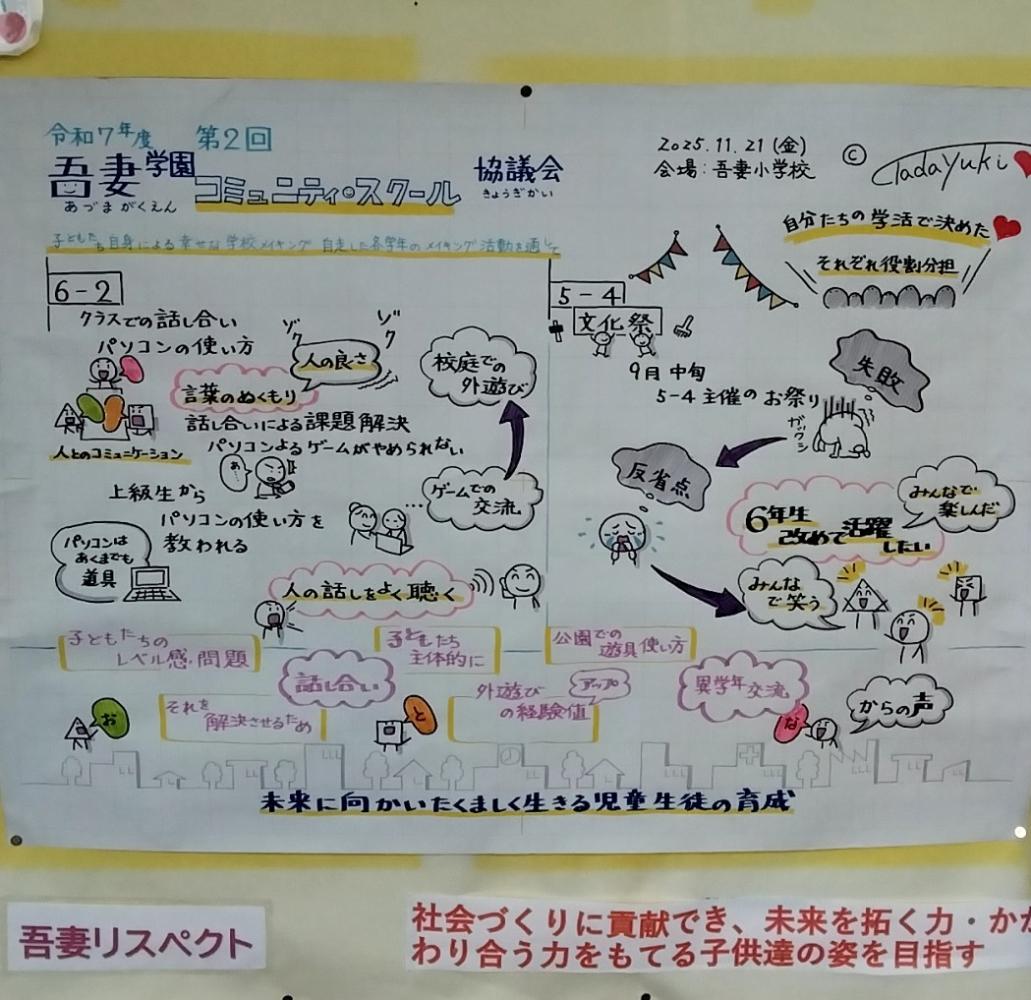 令和7年度 第2回
吾妻学園 コミュニティ・スクール 協議会
あづまがくえん きょうぎかい
2025.11.21(金)
会場:吾妻小学校
© TadaYuki
子どもたち自身による幸せな学校メイキング 自走した各学年のメイキング活動を通して
自分たちの学活で決めた
それぞれ役割分担
6-2
クラスでの話し合い
パソコンの使い方
ゾク
ゾク
人の良さ
言葉のぬくもり
話し合いによる課題解決
人とのコミュニケーション
パソコンよるゲームがやめられない
あ…
校庭での
外遊び
ゲームでの
交流
上級生から
パソコンの使い方を
教われる
パソコンは
あくまでも
道具
人の話しをよく聴く
5-4
文化祭
9月中旬
5-4主催のお祭り
失敗
ガックシ
反省点
みんなで
楽しんだ
6年生
改めて活躍
したい
みんな
で笑う
子どもたちの
レベル感・問題
子どもたち
主体的に
公園での
遊具使い方
話し合い
それを
解決させるため
外遊び
の経験値
アップ
異学年
交流
お
と
な
からの声
未来に向かいたくましく生きる児童生徒の育成
吾妻リスペクト
社会づくりに貢献でき、未来を拓く力・かか
わり合う力をもてる子供達の姿を目指す